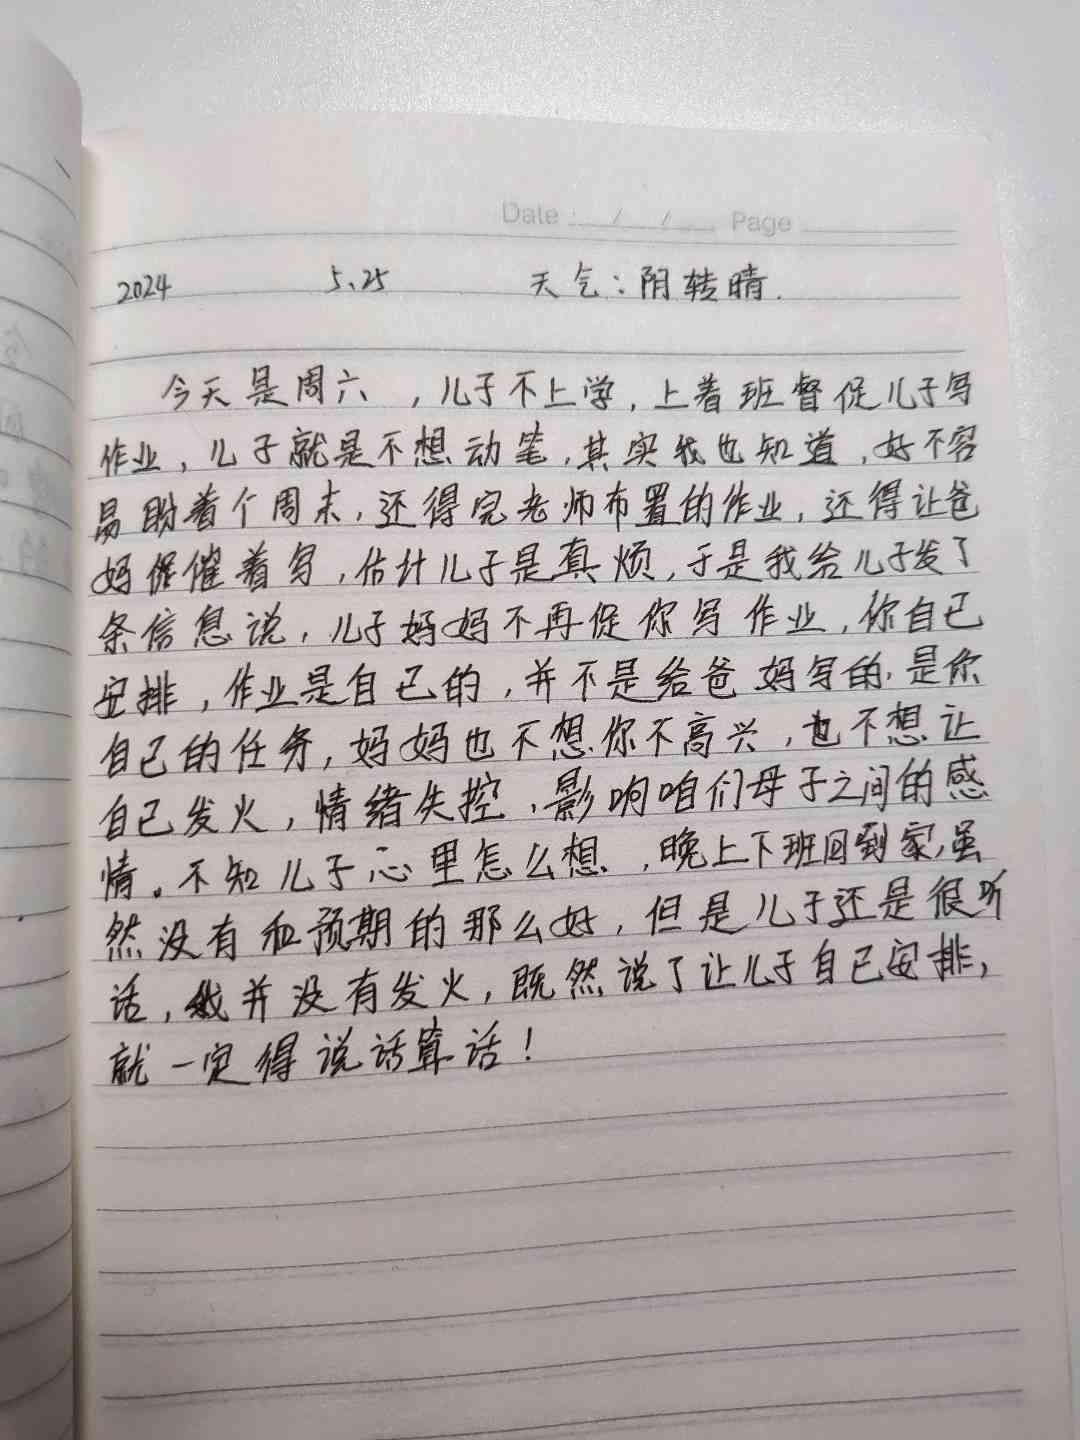 Date: / / Page
2024 5.25 天气：阴转晴.
今天是周六，儿子不上学，上着班督促儿子写
作业，儿子就是不想动笔，其实我也知道，好不容
易盼着个周末，还得完老师布置的作业，还得让爸
妈催着写，估计儿子是真烦，于是我给儿子发了
条信息说，儿子妈妈不再促你写作业，你自己
安排，作业是自己的，并不是给爸妈写的，是你
自己的任务，妈妈也不想你不高兴，也不想让
自己发火，情绪失控，影响咱们母子之间的感
情。不知儿子心里怎么想，晚上下班回到家，虽
然没有和预期的那么好，但是儿子还是很听
话，我并没有发火，既然说了让儿子自己安排，
就一定得说话算话！